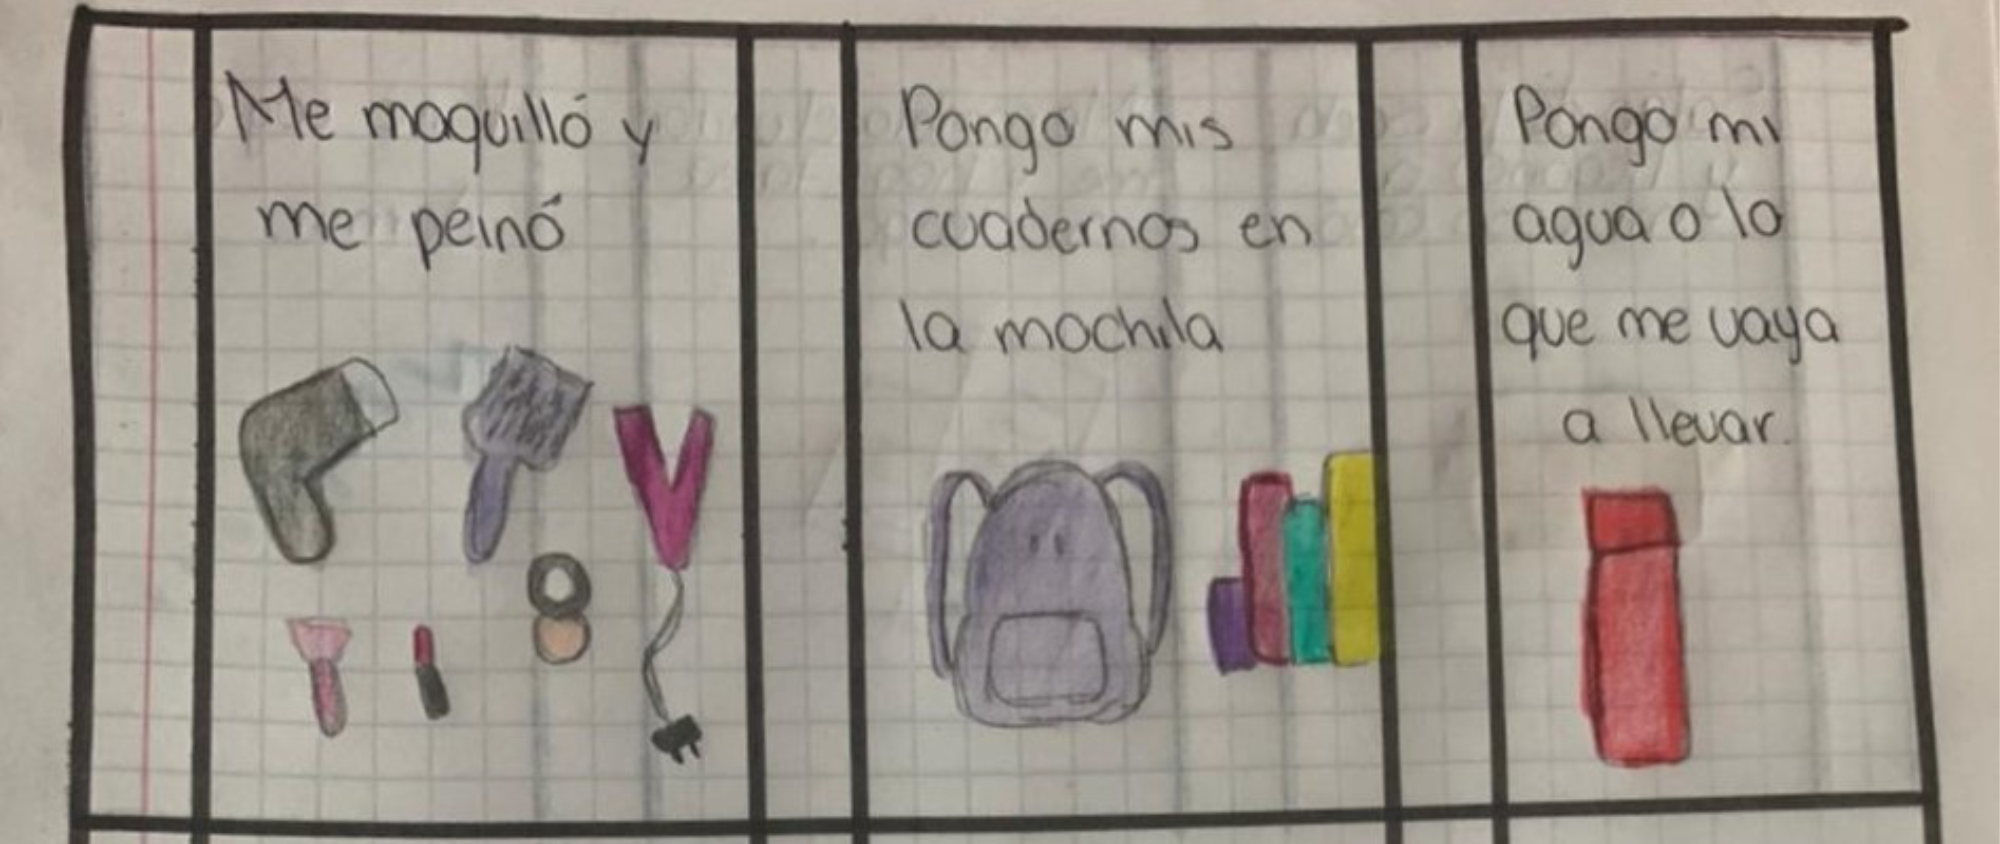 Me maquilló y
me peinó
Pongo mis
cuadernos en
la mochila
Pongo mi
agua o lo
que me vaya
a llevar.